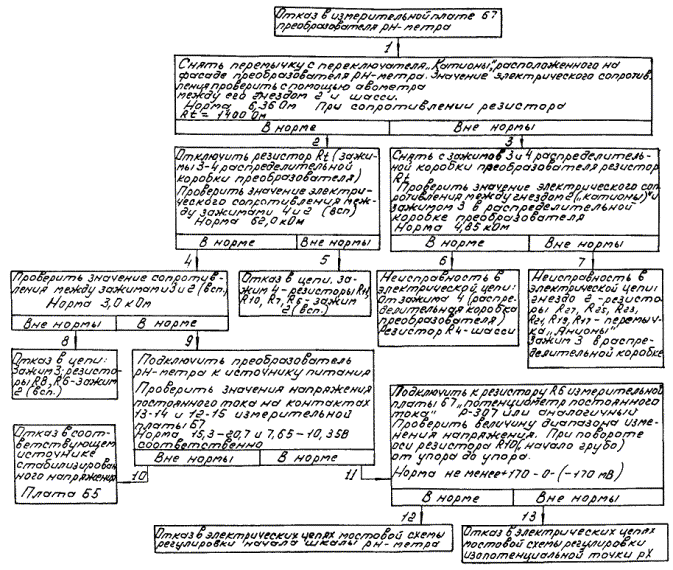 Отказ в измерительной плате Б7
преобразователя рН-метра
1
Снять перемычку с переключателя „Катионы", расположенного на
фасаде преобразователя рН-метра. Значение электрического сопротив-
ления проверить с помощью авометра
между его гнездом 2 и шасси.
Норма 6,36 Ом При сопротивлении резистора
Rt = 1400 Ом
В норме
Вне нормы
2
3
Отключить резистор Rt (зажи-
мы 3-4 распределительной
коробки преобразователя)
Проверить значение электри-
ческого сопротивления меж-
ду зажимами 4 и 2 (всп)
Норма 62,0 кОм
В норме
Вне нормы
Снять с зажимов 3 и 4 распределитель-
ной коробки преобразователя резистор
Rt
Проверить значение электрического соп-
ротивления между гнездом 2 („катионы") и
зажимом 3 в распределительной
коробке преобразователя
Норма 4,85 кОм
В норме
Вне нормы
4
5
6
7
Проверить значение сопротив-
ления между зажимами 3 и 2 (всп)
Норма 3,0 кОм
Вне нормы
В норме
Отказ в цепи. За-
жим 4-резисторы R11,
R10, R7, R6-зажим
2 (всп.)
Неисправность в
электрической цепи:
От зажима 4 (распре-
делительная коробка
преобразователя)
Резистор R4-шасси
Неисправность в
электрической цепи:
гнездо 2 - резис-
торы R27, R25, R23,
R21, R19, R17 - перемыч-
ка „Анионы"
Зажим 3 в распре-
делительной коробке
8
9
Отказ в цепи:
Зажим 3; резисто-
ры R8, R6-зажим
2 (всп.)
Подключить преобразователь
рН-метра к источнику питания
Проверить значения напряжения
постоянного тока на контактах
13-14 и 12-15 измерительной
платы Б7
Норма 15,3-20,7 и 7,65-10,35В
соответственно
Вне нормы
В норме
10
11
Отказ в соот-
ветствующем
источнике
стабилизирован-
ного напряжения
Плата Б5
Подключить к резистору R6 измерительной
платы Б7 „потенциометр постоянного
тока" Р-307 или аналогичный
Проверить величину диапазона изме-
нения напряжения. При повороте
оси резистора R10 („начало грубо)
от упора до упора.
Норма не менее +170 - 0 - (-170 мВ)
В норме
Вне нормы
12
13
Отказ в электрических цепях мостовой схемы
регулировки начала шкалы рН-метра
Отказ в электрических цепях
мостовой схемы регулировки
изопотенциальной точки рХ